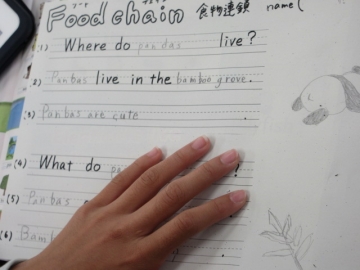 フード チェイン
Food chain 食物連鎖 name(
(1) Where do pandas live?
(2) Panbas live in the bamboo grove.
(3) Panbas are cute.
(4) What do ?
(5) Panbas
(6) Bamb